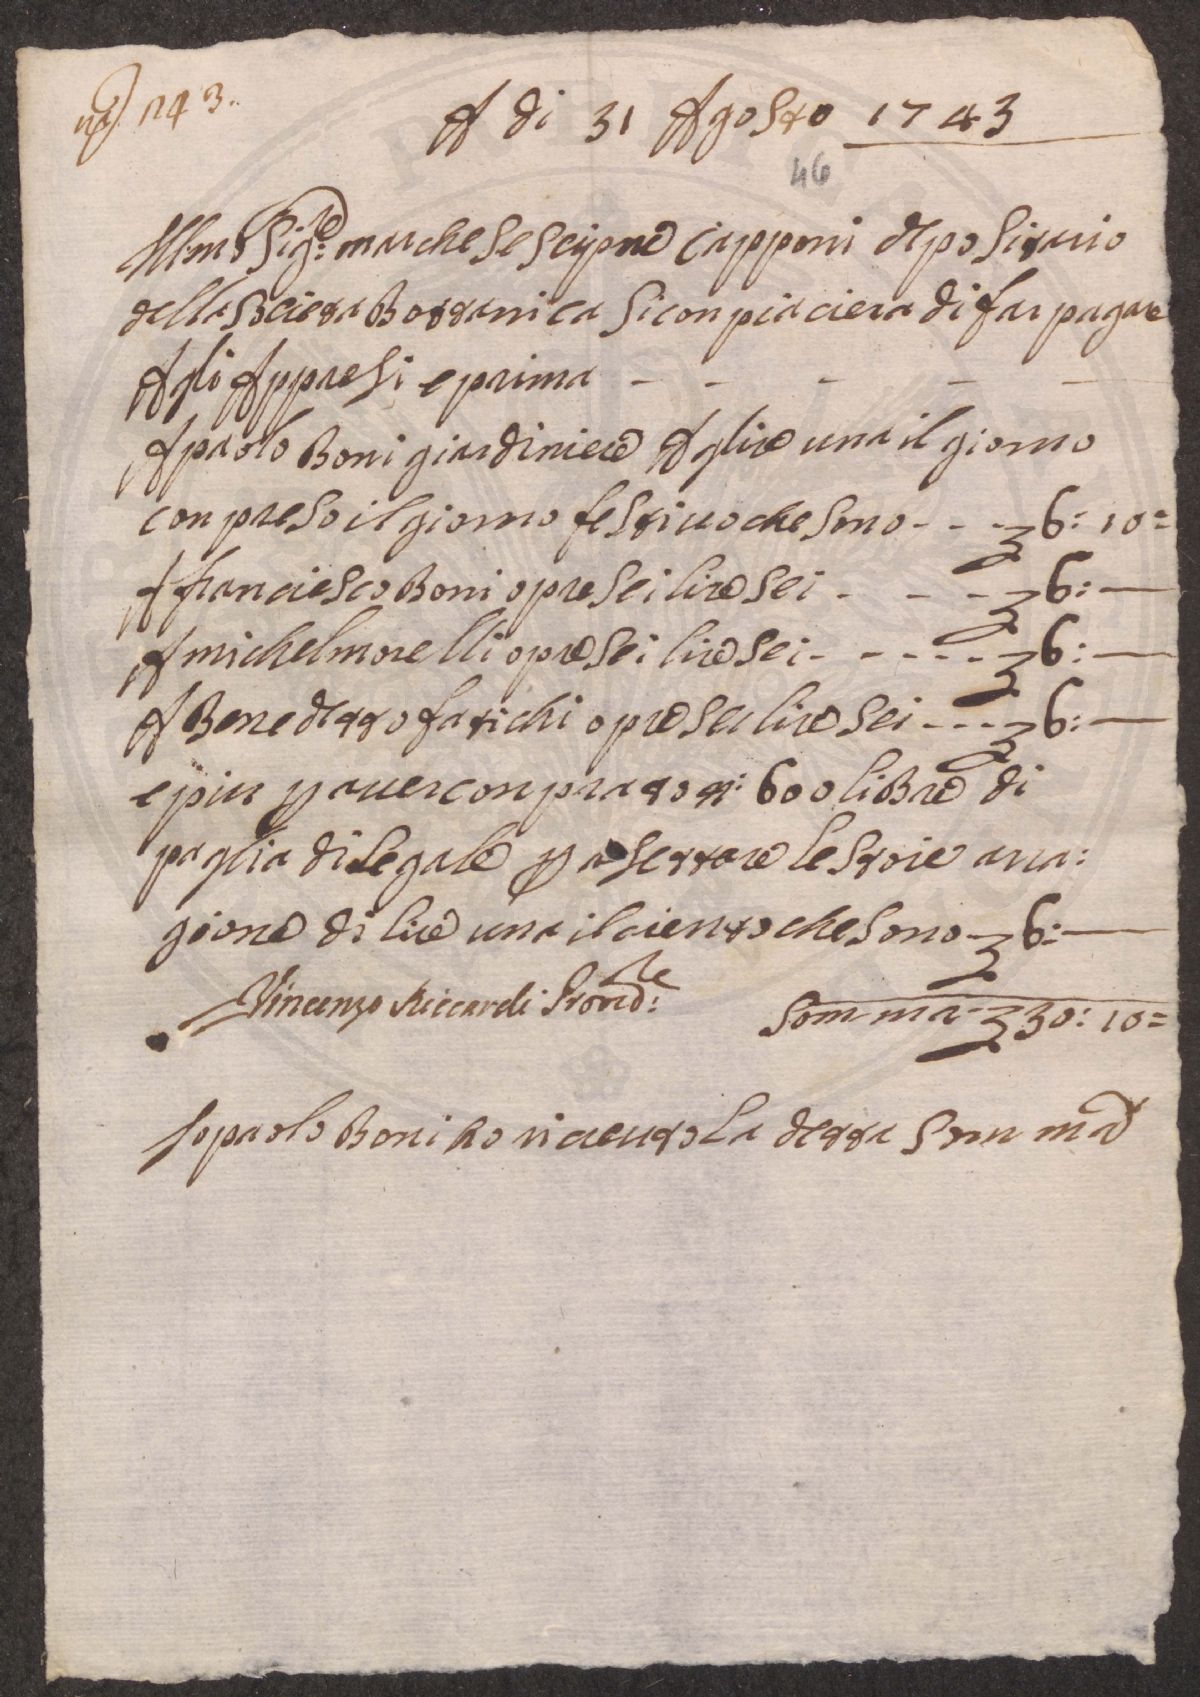 n.° 143.
A di 31 Agosto 1743
46
Ill.mo Sig.re marchese Scipione Capponi depositario
della Scieta Bottanica si conpiaciera di far pagare
A gli Appresi e prima - - - - -
A paolo Boni giardiniere A lire una il giorno
conpreso il giorno festiuo che sono - - - 6: 10 =
A franciesco Boni opre sei lire sei - - - 6: —
A michel morelli opre sei lire sei - - - - - 6: —
A Benedetto farichi opre sei lire sei - - - 6: —
e piu p auer conprato 600 libre di
paglia di segale p asettare le stoie a ra:
gione di lire una il ciento che sono - 6: —
Vincenzo Riccardi Prond.te
Somma - 30: 10 =
Io paolo Boni ho riceuto La detta somma